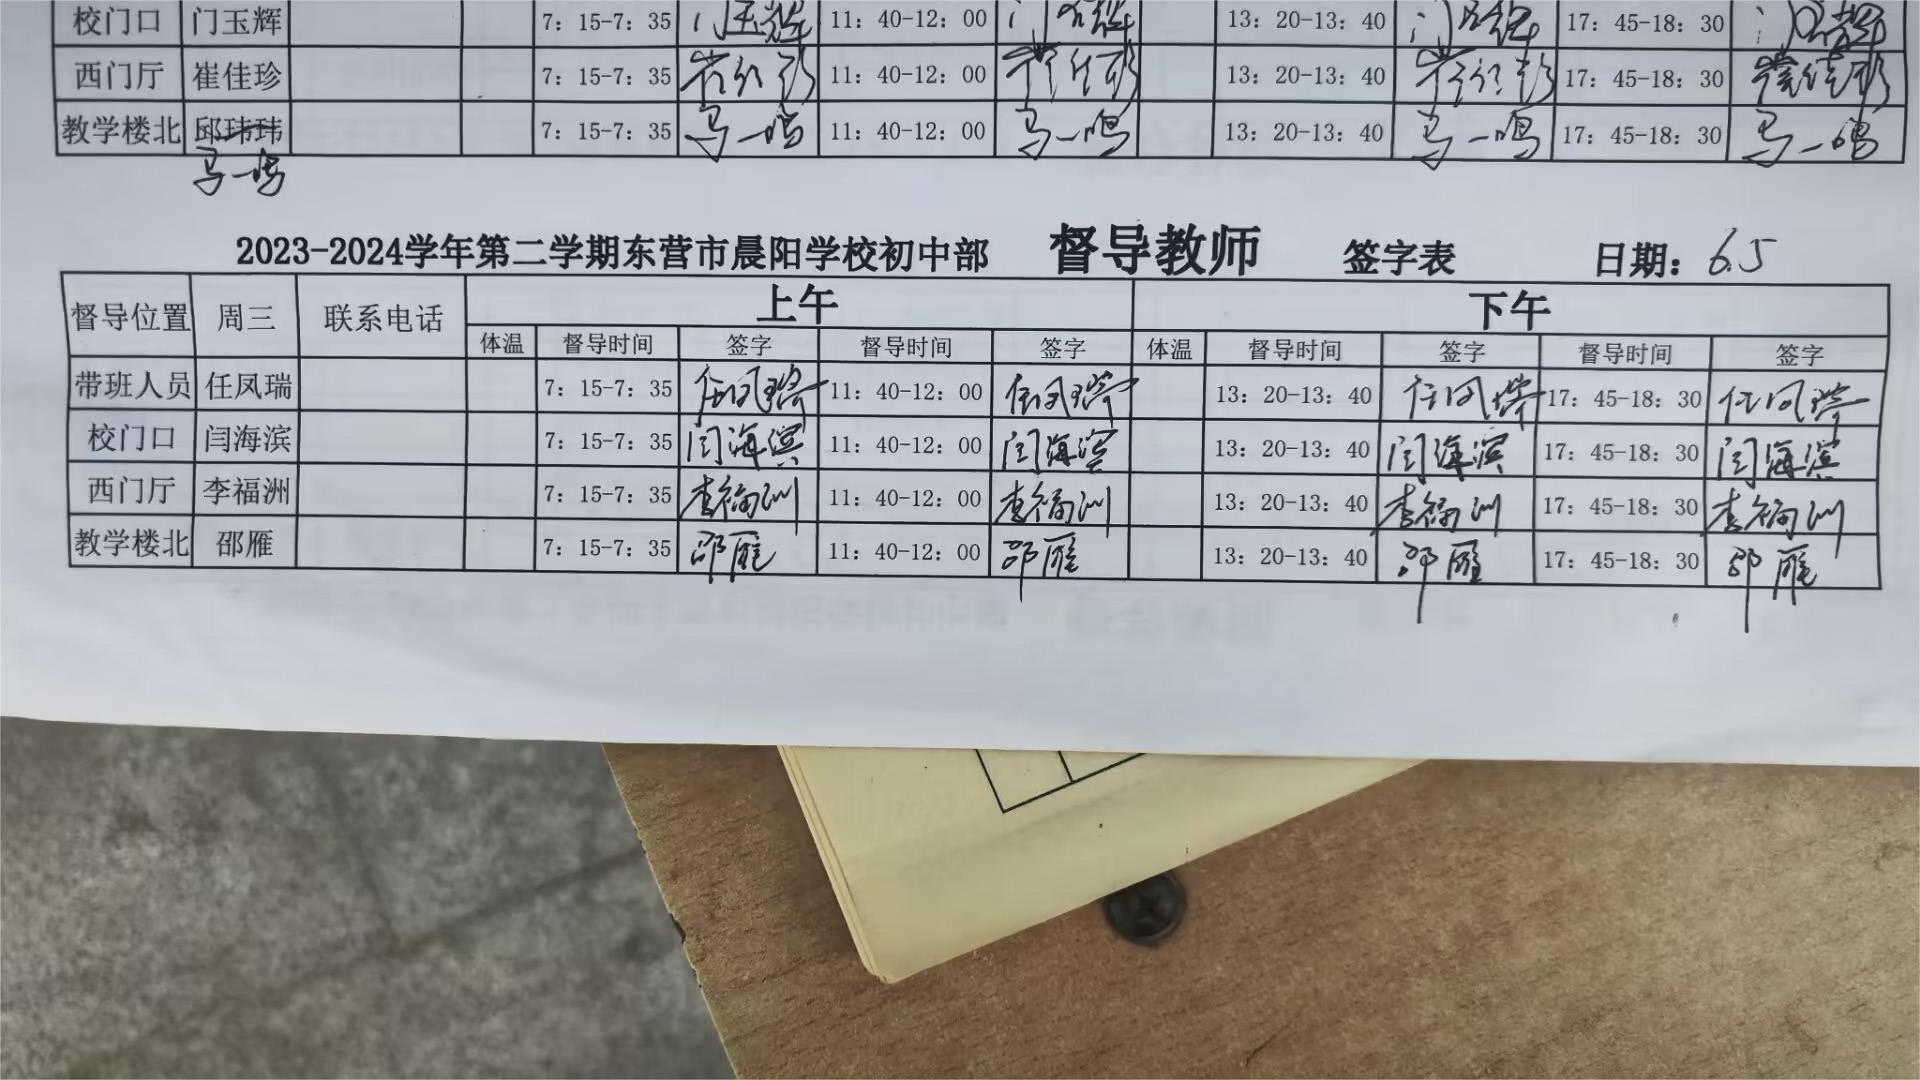 校门口 门玉辉 7：15-7：35 门玉辉 11：40-12：00 门玉辉 13：20-13：40 门玉辉 17：45-18：30 门玉辉
西门厅 崔佳珍 7：15-7：35 崔佳珍 11：40-12：00 崔佳珍 13：20-13：40 崔佳珍 17：45-18：30 崔佳珍
教学楼北 邱玮玮 7：15-7：35 马一鸣 11：40-12：00 马一鸣 13：20-13：40 马一鸣 17：45-18：30 马一鸣
马一鸣
2023-2024学年第二学期东营市晨阳学校初中部 督导教师 签字表 日期：6.5
督导位置 周三 联系电话 上午 下午
体温 督导时间 签字 督导时间 签字 体温 督导时间 签字 督导时间 签字
带班人员 任凤瑞 7：15-7：35 任凤瑞 11：40-12：00 任凤瑞 13：20-13：40 任凤瑞 17：45-18：30 任凤瑞
校门口 闫海滨 7：15-7：35 闫海滨 11：40-12：00 闫海滨 13：20-13：40 闫海滨 17：45-18：30 闫海滨
西门厅 李福洲 7：15-7：35 李福洲 11：40-12：00 李福洲 13：20-13：40 李福洲 17：45-18：30 李福洲
教学楼北 邵雁 7：15-7：35 邵雁 11：40-12：00 邵雁 13：20-13：40 邵雁 17：45-18：30 邵雁